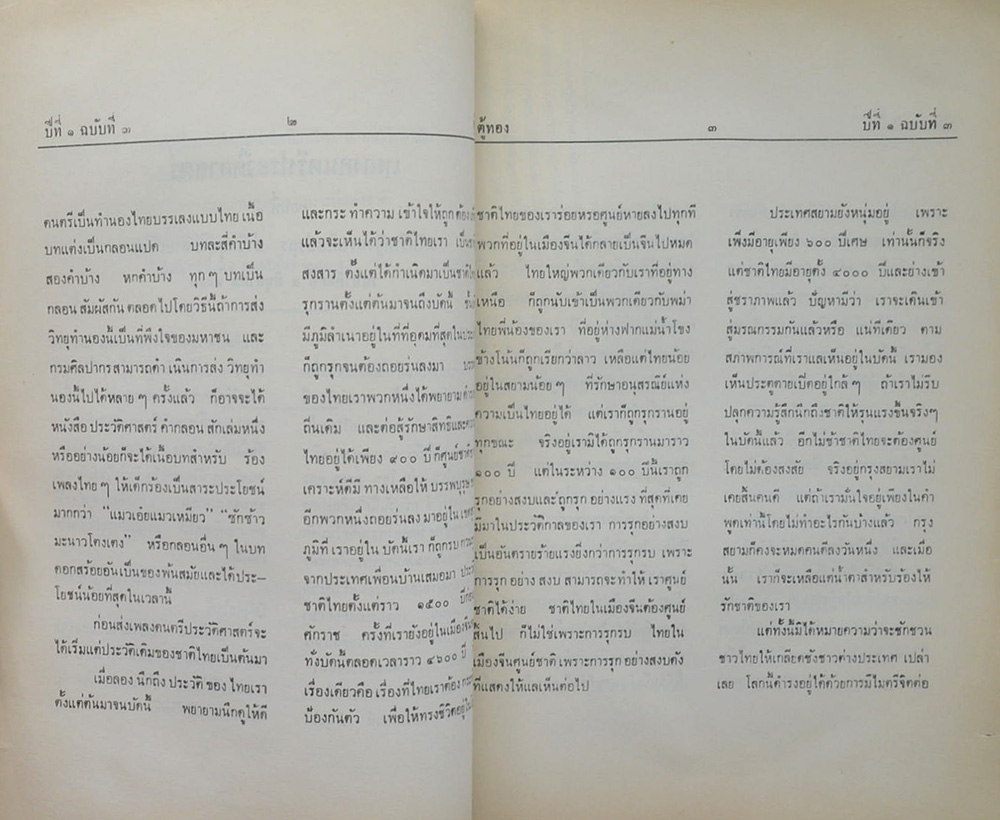 ปีที่ ๑ ฉบับที่ ๓
๒
ดนตรีเป็นทำนองไทยบรรเลงแบบไทย เนื้อ
บทแต่งเป็นกลอนแปด บทละสี่คำบ้าง
สองคำบ้าง หกคำบ้าง ทุก ๆ บทเป็น
กลอน สัมผัสกัน ตลอดไปโดยวิธีนี้ถ้าการส่ง
วิทยุทำนองนี้เป็นที่พึงใจของมหาชน และ
กรมศิลปากร สามารถดำ เนินการส่ง วิทยุทำ
นองนี้ไปได้หลาย ๆ ครั้งแล้ว ก็อาจจะได้
หนังสือ ประวัติศาสตร์ คำกลอน สักเล่มหนึ่ง
หรืออย่างน้อยก็จะได้เนื้อบทสำหรับ ร้อง
เพลงไทย ๆ ให้เด็กร้องเป็นสาระประโยชน์
มากกว่า “แมวเอ๋ยแมวเหมียว” “ซักซ้าว
มะนาวโตงเตง” หรือกลอนอื่น ๆ ในบท
ดอกสร้อยอันเป็นของพ้นสมัยและได้ประ–
โยชน์น้อยที่สุดในเวลานี้
ก่อนส่งเพลงดนตรีประวัติศาสตร์จะ
ได้เริ่มแต่ประวัติเดิมของชาติไทยเป็นต้นมา
เมื่อลอง นึกถึง ประวัติ ของ ไทยเรา
ตั้งแต่ต้นมาจนบัดนี้ พยายามนึกดูให้ดี
และกระ ทำความ เข้าใจให้ถูก ต้อง
แล้วจะเห็นได้ว่าชาติไทยเรา
สงสาร ตั้งแต่ได้กำเนิดมาเป็นชาติ
รุกรานตั้งแต่ต้นมาจนถึงบัดนี้
มีภูมิลำเนาอยู่ในที่ที่อุดมที่สุดใน
ก็ถูกรุกจนต้องถอยร่นลงมา
ของไทยเราพวกหนึ่งได้พยายาม
ถิ่นเดิม และต่อสู้รักษาสิทธิและ
ไทยอยู่ได้เพียง ๙๐๐ ปี ก็ศูนย์
เคราะห์ดีมี ทางเหลือให้ บรรพบุรุษ
อีกพวกหนึ่งถอยร่นลง มาอยู่ใน
ภูมิที่ เราอยู่ใน บัดนี้เรา ก็ถูกรบ
จากประเทศเพื่อนบ้านเสมอมา
ชาติไทยตั้งแต่ราว ๑๕๐๐ ปีก่อน
ศักราช ครั้งที่เรายังอยู่ในเมืองจีน
ทั่งบัดนี้ตลอดเวลาราว ๔๖๐๐ ปี
เรื่องเดียวคือ เรื่องที่ไทยเราต้อง
ป้องกันตัว เพื่อให้ทรงชีวิตอยู่
ตู้ทอง
๓
ปีที่ ๑ ฉบับที่ ๓
ชาติไทยของเราร่อยหรอศูนย์หายลงไปทุกที
พวกที่อยู่ในเมืองจีนได้กลายเป็นจีนไปหมด
แล้ว ไทยใหญ่พวกเดียวกับเราที่อยู่ทาง
เหนือ ก็ถูกนับเข้าเป็นพวกเดียวกับพม่า
ไทยพี่น้องของเรา ที่อยู่ห่างฟากแม่น้ำโขง
ข้างโน้นก็ถูกเรียกว่าลาว เหลือแต่ไทยน้อย
อยู่ในสยามน้อย ๆ ที่รักษาอนุสรณีย์แห่ง
ความเป็นไทยอยู่ได้ แต่เราก็ถูกรุกรานอยู่
ทุกขณะ จริงอยู่เรามิได้ถูกรุกรานมาราว
๑๐๐ ปี แต่ในระหว่าง ๑๐๐ ปีนี้เราถูก
รุกอย่างสงบและถูกรุก อย่างแรง ที่สุดที่เคย
มีมาในประวัติกาลของเรา การรุกอย่างสงบ
เป็นอันตรายร้ายแรงยิ่งกว่าการรุกรบ เพราะ
การรุก อย่าง สงบ สามารถจะทำให้ เราศูนย์
ชาติได้ง่าย ชาติไทยในเมืองจีนต้องศูนย์
สิ้นไป ก็ไม่ใช่เพราะการรุกรบ ไทยใน
เมืองจีนศูนย์ชาติ เพราะการรุก อย่างสงบดัง
ที่แสดงให้แลเห็นต่อไป
ประเทศสยามยังหนุ่มอยู่ เพราะ
เพิ่งมีอายุเพียง ๖๐๐ ปีเศษ เท่านั้นก็จริง
แต่ชาติไทยมีอายุตั้ง ๔๐๐๐ ปีและย่างเข้า
สู่ชราภาพแล้ว ปัญหามีว่า เราจะเดินเข้า
สู่มรณกรรมกันแล้วหรือ แน่ทีเดียว ตาม
สภาพการณ์ที่เราแลเห็นอยู่ในบัดนี้ เรามอง
เห็นประตูตายเปิดอยู่ใกล้ ๆ ถ้าเราไม่รีบ
ปลุกความรู้สึกนึกถึงชาติให้รุนแรงขึ้นจริงๆ
ในบัดนี้แล้ว อีกไม่ช้าชาติไทยจะต้องศูนย์
โดยไม่ต้องสงสัย จริงอยู่กรุงสยามเราไม่
เคยสิ้นคนดี แต่ถ้าเรามั่นใจอยู่เพียงในคำ
พูดเท่านี้โดยไม่ทำอะไรกันบ้างแล้ว กรุง
สยามก็คงจะหมดคนดีลงวันหนึ่ง และเมื่อ
นั้น เราก็จะเหลือแต่น้ำตาสำหรับร้องไห้
รักชาติของเรา
แต่ทั้งนี้มิได้หมายความว่าจะชักชวน
ชาวไทยให้เกลียดชังชาวต่างประเทศ เปล่า
เลย โลกนี้ดำรงอยู่ได้ด้วยการมีไมตรีจิตต่อ